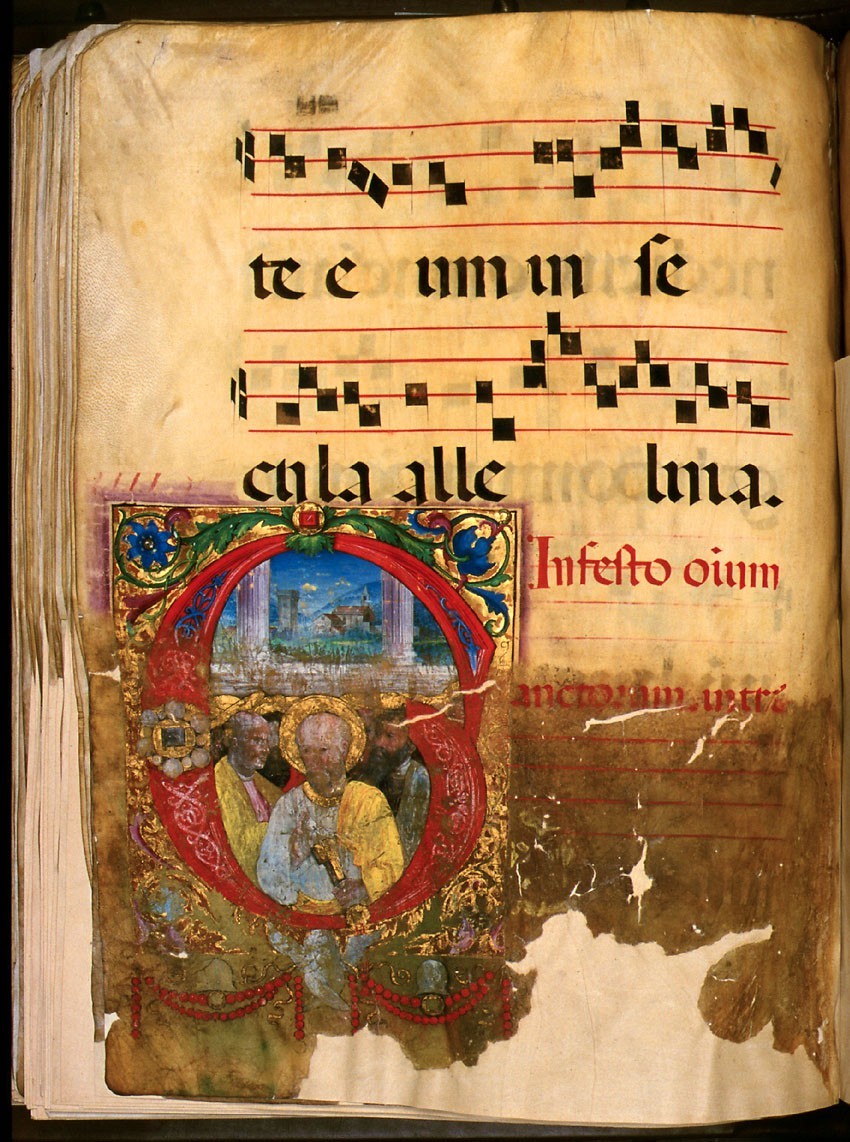 te e um in se
cula alle luia.
In festo oium
sanctorum. intro